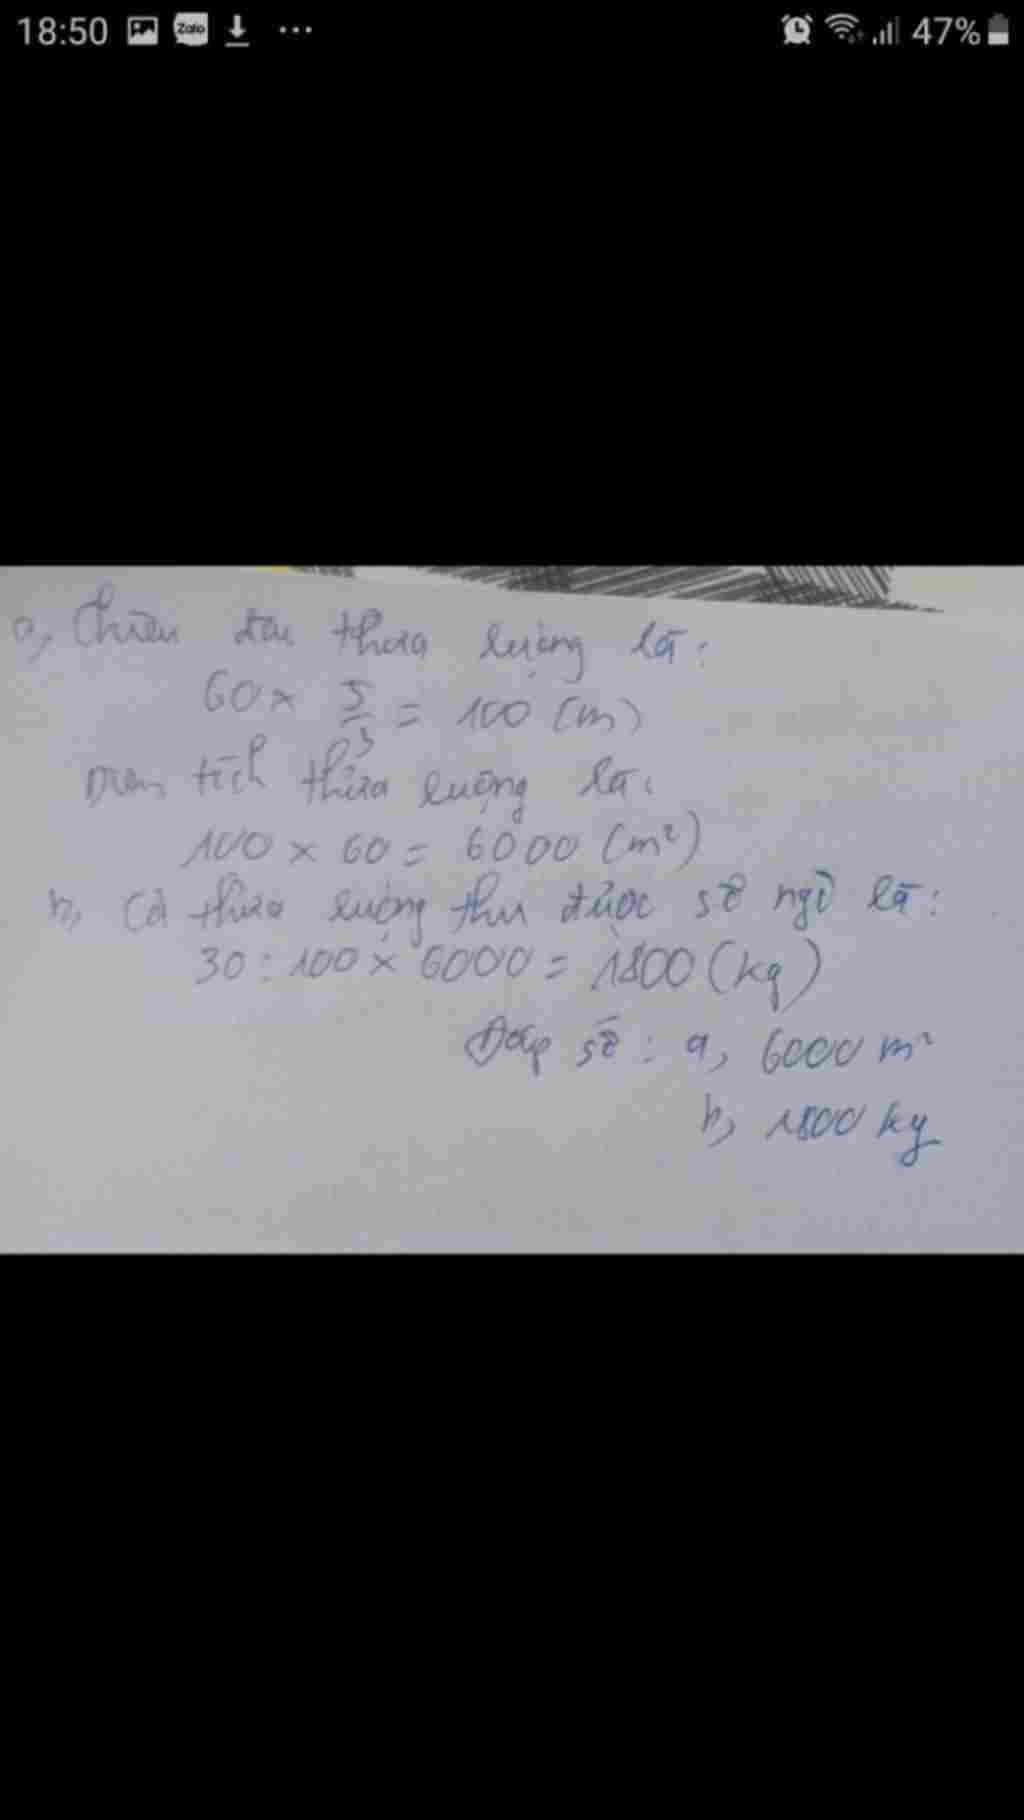 18:50 Zalo 47%
a, Chiều dài thửa ruộng là:
60 × 5/3 = 100 (m)
Diện tích thửa ruộng là:
100 × 60 = 6000 (m²)
b, Cả thửa ruộng thu được số ngô là:
30 : 100 × 6000 = 1800 (kg)
Đáp số : a, 6000 m²
b, 1800 kg